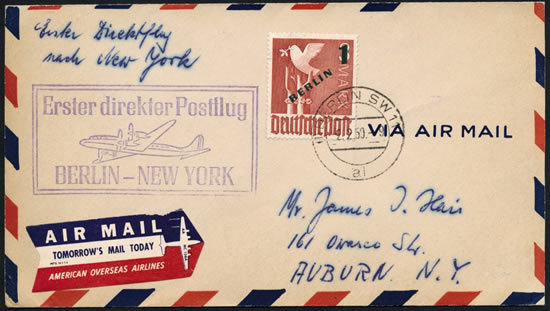 Erster Direktflug
nach New York
Erster direkter Postflug
BERLIN – NEW YORK
1
BERLIN
Deutsche Post
SW11
VIA AIR MAIL
a
AIR MAIL
TOMORROW'S MAIL TODAY
AMERICAN OVERSEAS AIRLINES
Mr. James T. Hair
161 Owasco Str.
AUBURN. N.Y.